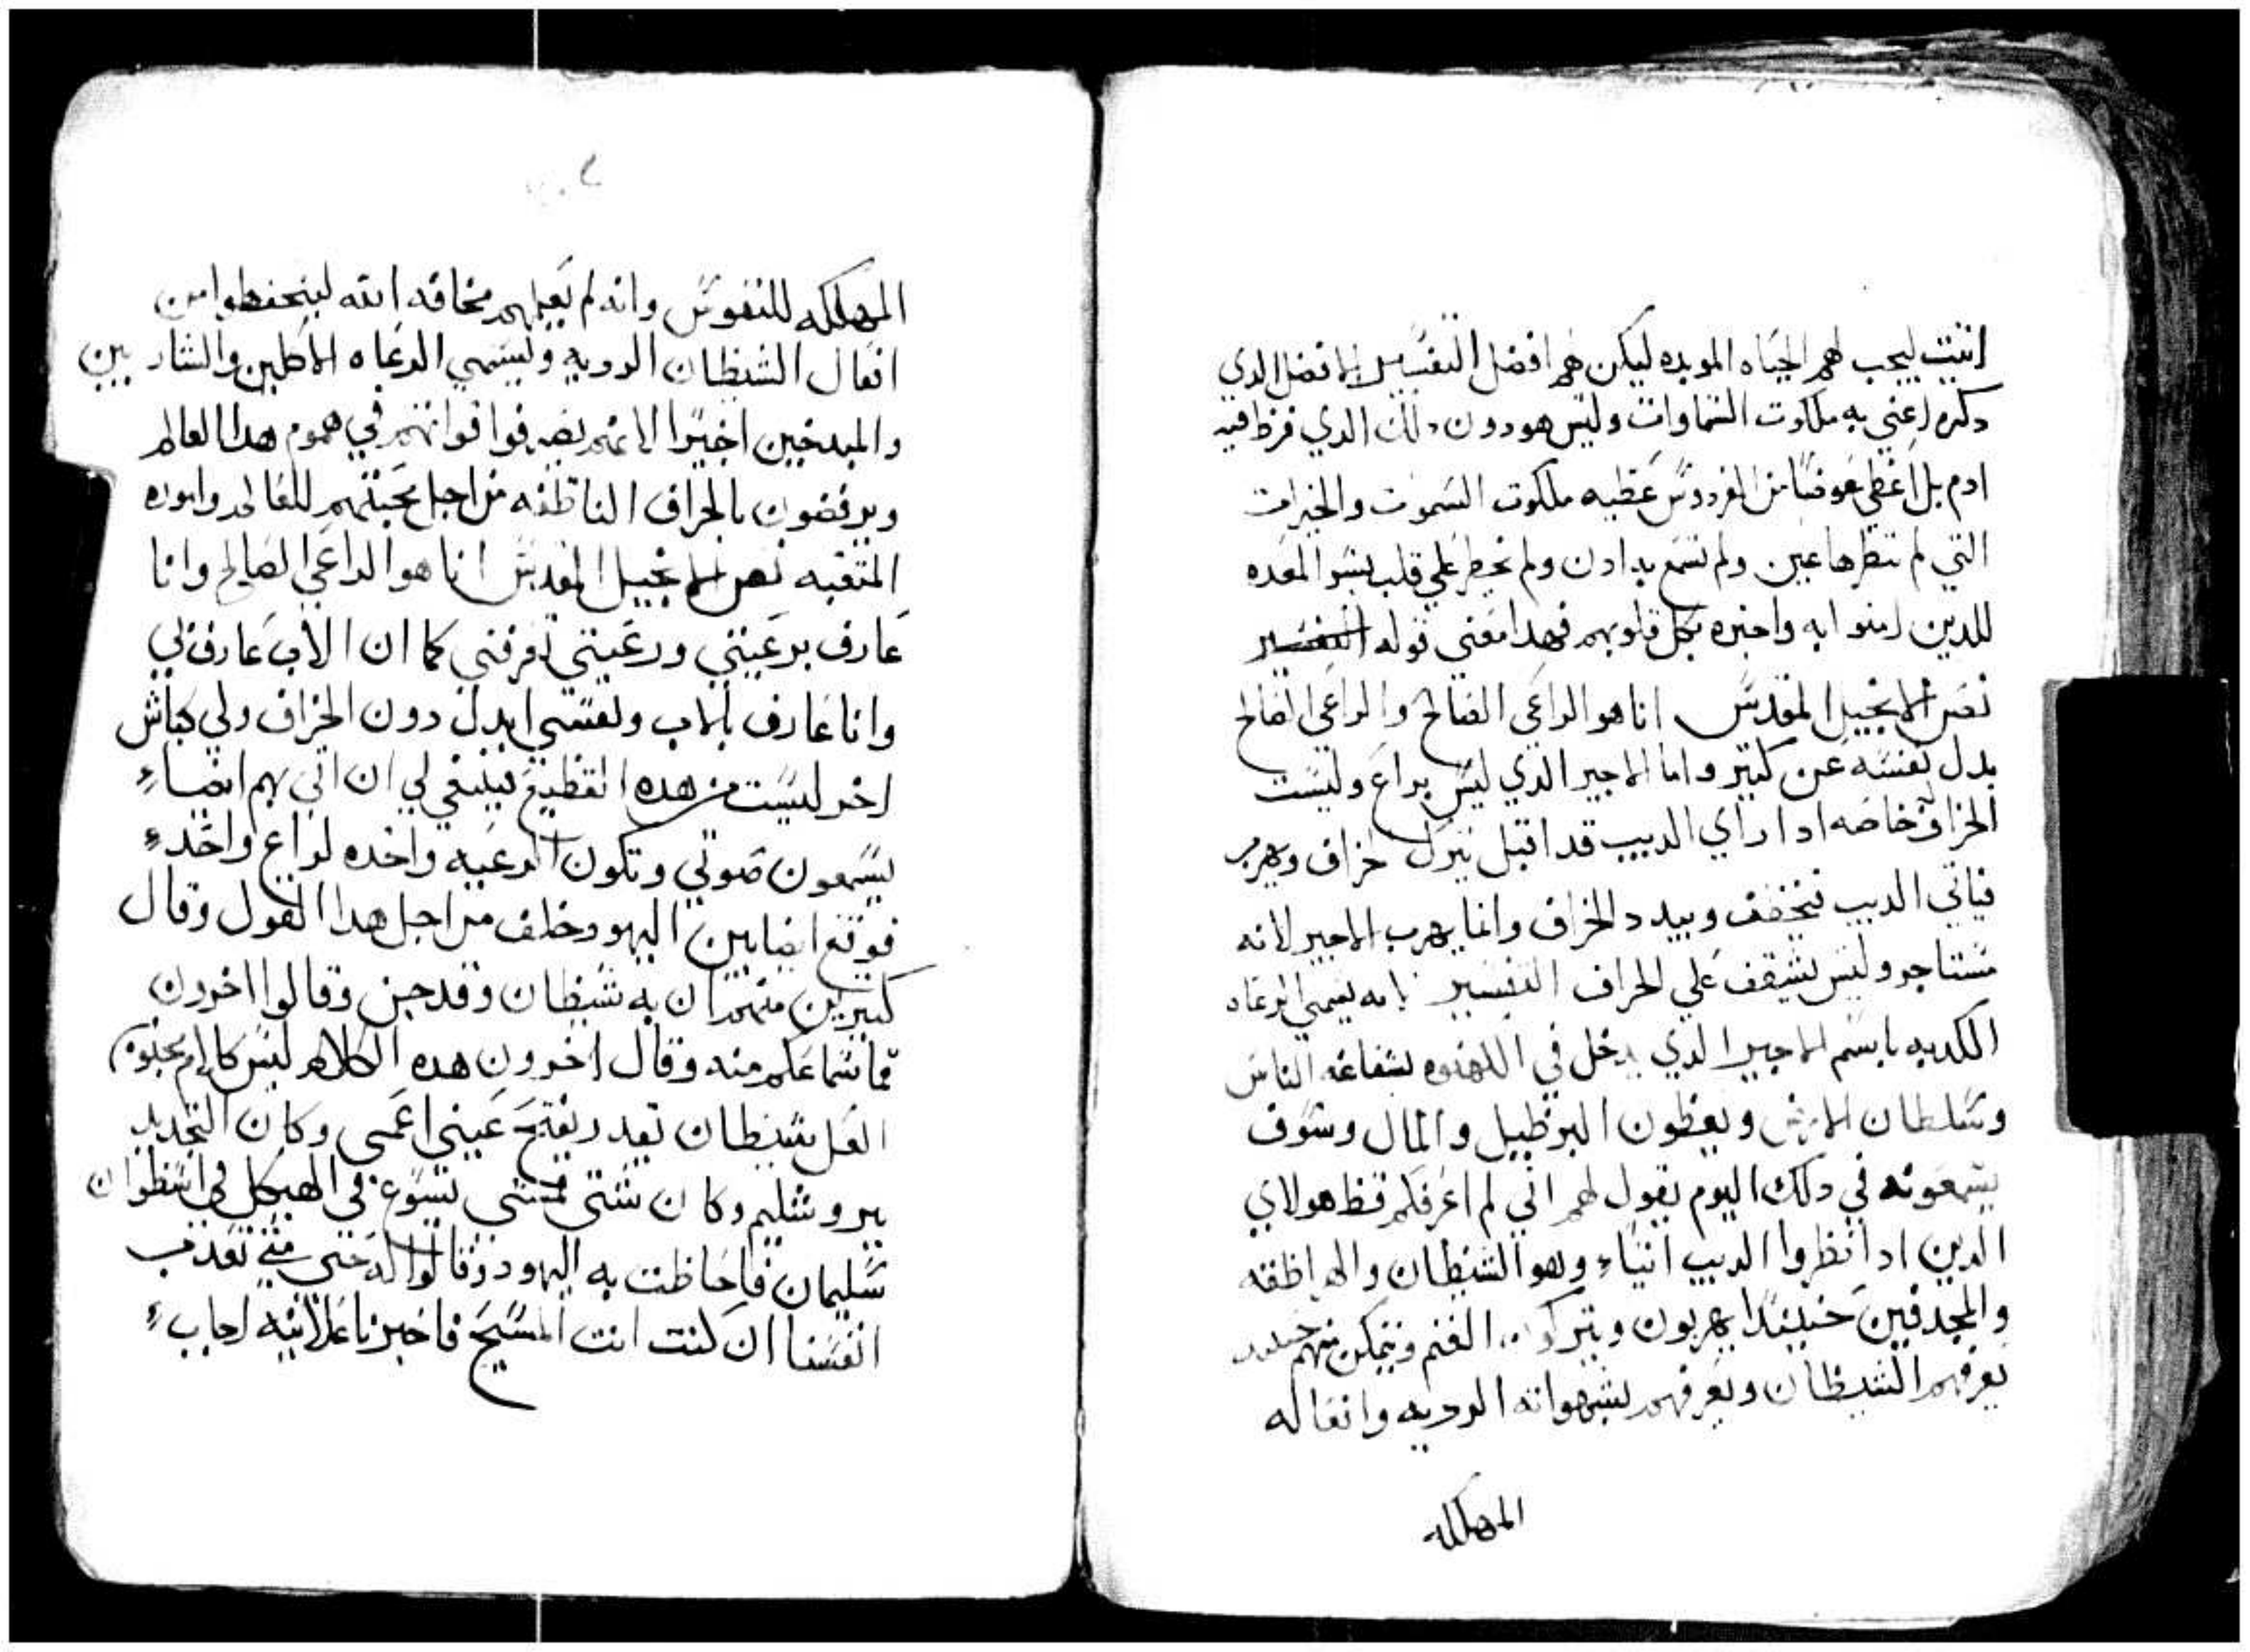 اتيت ليجب لهم الحياه الموبده ليكن لهم افضل التفسير الافضل الدي
دكره اعني به ملكوت السماوات وليس هو دون دلك الدي فرط فيه
ادم بل اعطي عوضا من الفردوس عطيه ملكوت السموت والخيرات
التي لم تنظرها عين ولم تسمع بها ادن ولم تخطر علي قلب بشر المعده
للدين امنوا به واحبوه بكل قلوبهم فهدا معني قوله التفسير
نص الانجيل المقدس انا هو الراعي الصالح والراعي الصالح
بدل نفسه عن كتير واما الاجير الدي ليس براع وليست
الخراف له خاصه ادا راي الديب قد اقبل يترك خراف ويهرب
فياتي الديب فيخطف ويبدد الخراف وانما يهرب الاجير لانه
مستاجر وليس يشفق علي الخراف التفسير انه يسمي الرعاه
الكدبه باسم الاجير الدي يدخل في الكهنوه بشفاعه الناس
وسلطان الارض ويعطون البرطيل والمال وسوف
يسمعونه في دلك اليوم يقول لهم اني لم اعرفكم قط هولاي
الدين ادا نظروا الديب اتياء وهو الشيطان والهراطقه
والمجدفين حينيدا يهربون ويتركون الغنم وتتمكن منهم حينيد
يعرفهم الشيطان ويعرفهم بشهواته الرديه وافعاله
المهلكه
المهلكه للنفوس وانه لم يعلمهم مخافه الله ليتحفظوا من
افعال الشيطان الرديه ويسمي الرعاه الاكلين والشاربين
والمبدخين اجيرا لانهم يصرفوا قواتهم في هموم هدا العالم
ويرفضون بالخراف الناطقه من اجل محبتهم للعالم واموره
المتعبه نص الانجيل المقدس انا هو الراعي الصالح وانا
عارف برعيتي ورعيتي تعرفني كما ان الاب عارف بي
وانا عارف بالاب ونفسي ابدل دون الخراف ولي كباش
اخر ليست من هده القطيع فينبغي لي ان اتي بهم ايضاء
يسمعون صوتي وتكون الرعيه واحده لراع واحدء
فوقع ايضا بين اليهود خلف من اجل هدا القول وقال
كتيرين منهم ان به شيطان وقد جن وقالوا اخرون
فما سماعكم منه وقال اخرون هده الكلام ليس كلام مجنون
العل شيطان يقدر يفتح عيني اعمي وكان التجديد
بيروشليم وكان شتي فمشي يسوع في الهيكل في اسطوان
سليمان فاحاطت به اليهود وقالوا له حتي متي تعدب
انفسنا ان كنت انت المسيح فاخبرنا علانيه اجابء